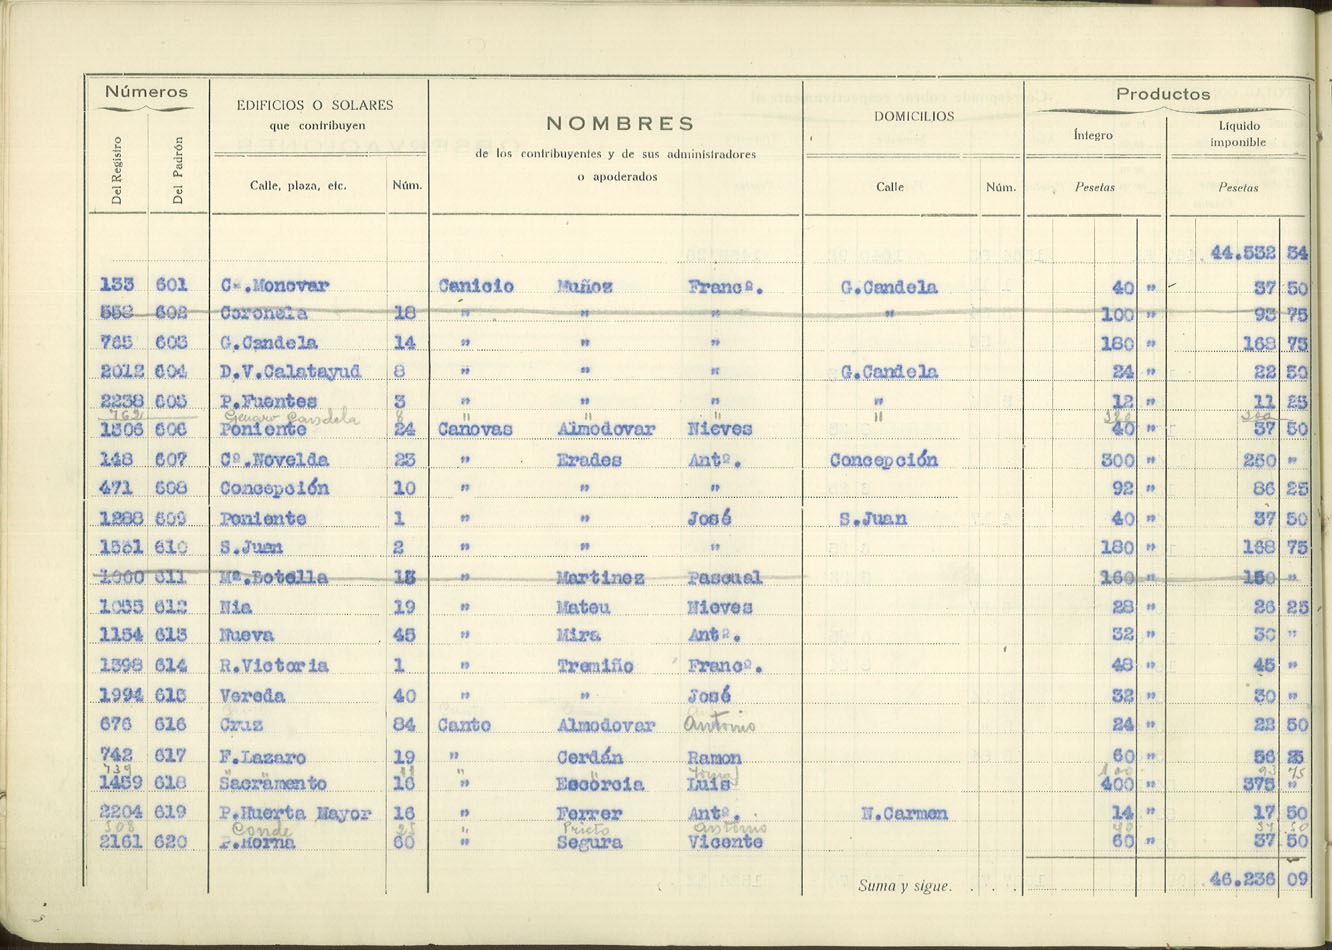 Números
EDIFICIOS O SOLARES
que contribuyen
NOMBRES
de los contribuyentes y de sus administradores
o apoderados
DOMICILIOS
Productos
Íntegro
Líquido
imponible
Del Registro
Del Padrón
Calle, plaza, etc.
Núm.
Calle
Núm.
Pesetas
Pesetas
44.532 34
133 601 Cº.Monovar Canicio Muñoz Francº. G.Candela 40 " 37 50
558 602 Coronela 18 " " " " 100 " 93 75
765 603 G.Candela 14 " " " 180 " 168 75
2012 604 D.V.Calatayud 8 " " " G.Candela 24 " 22 50
2238 605 P.Fuentes 3 " " " " 12 " 11 25
762 Genaro Candela 8 " " " " 320 300
1306 606 Poniente 24 Canovas Almodovar Nieves 40 " 37 50
148 607 Cº.Novelda 23 " Erades Antº. Concepción 300 " 250 "
471 608 Concepción 10 " " " 92 " 86 25
1288 609 Poniente 1 " " José S.Juan 40 " 37 50
1561 610 S.Juan 2 " " " 180 " 168 75
1000 611 Mª.Botella 15 " Martinez Pascual 160 " 150 "
1055 612 Nia 19 " Mateu Nieves 28 " 26 25
1154 613 Nueva 45 " Mira Antº. 32 " 30 "
1398 614 R.Victoria 1 " Tremiño Francº. 48 " 45 "
1994 615 Vereda 40 " " José 32 " 30 "
676 616 Cruz 84 Canto Almodovar Antonio 24 " 22 50
742 617 F.Lazaro 19 " Cerdán Ramon 60 " 56 25
739 " " 11 " " 100 93 75
1459 618 Sacramento 16 " Escorcia Luis 400 " 375 "
2204 619 P.Huerta Mayor 16 " Ferrer Antº. N.Carmen 14 " 17 50
508 Conde 25 " Prieto Antonio 40 37 50
2161 620 P.Horna 60 " Segura Vicente 60 " 37 50
Suma y sigue. . . . 46.236 09